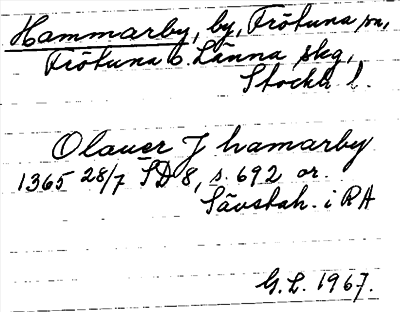 Hammarby, by, Frötuna sn,
Frötuna o. Länna skg,
Stockh. l.
Olauer J hamarby
1365 28/7 SD 8, s. 692 or.
Sävstah. i RA
G.L. 1967.